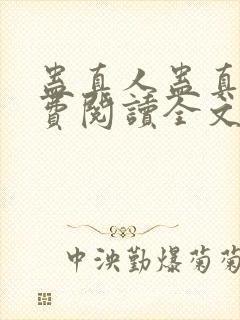 蛊真人蛊真
費閱讀全文
中泱勤爆菊菊